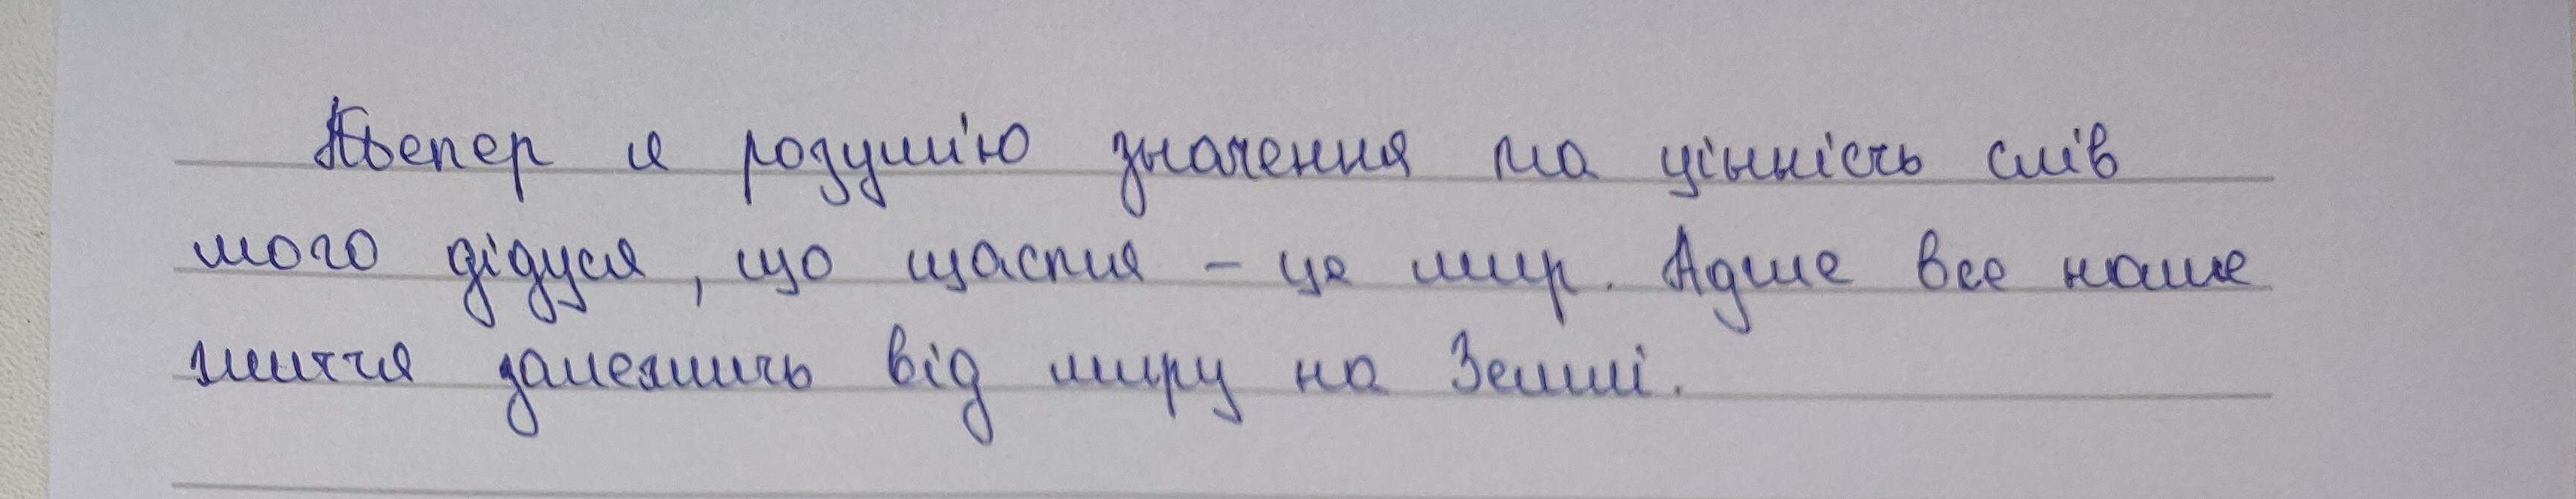 Тепер я розумію значення та цінність слів
мого дідуся, що щастя - це мир. Адже все наше
життя залежить від миру на Землі.